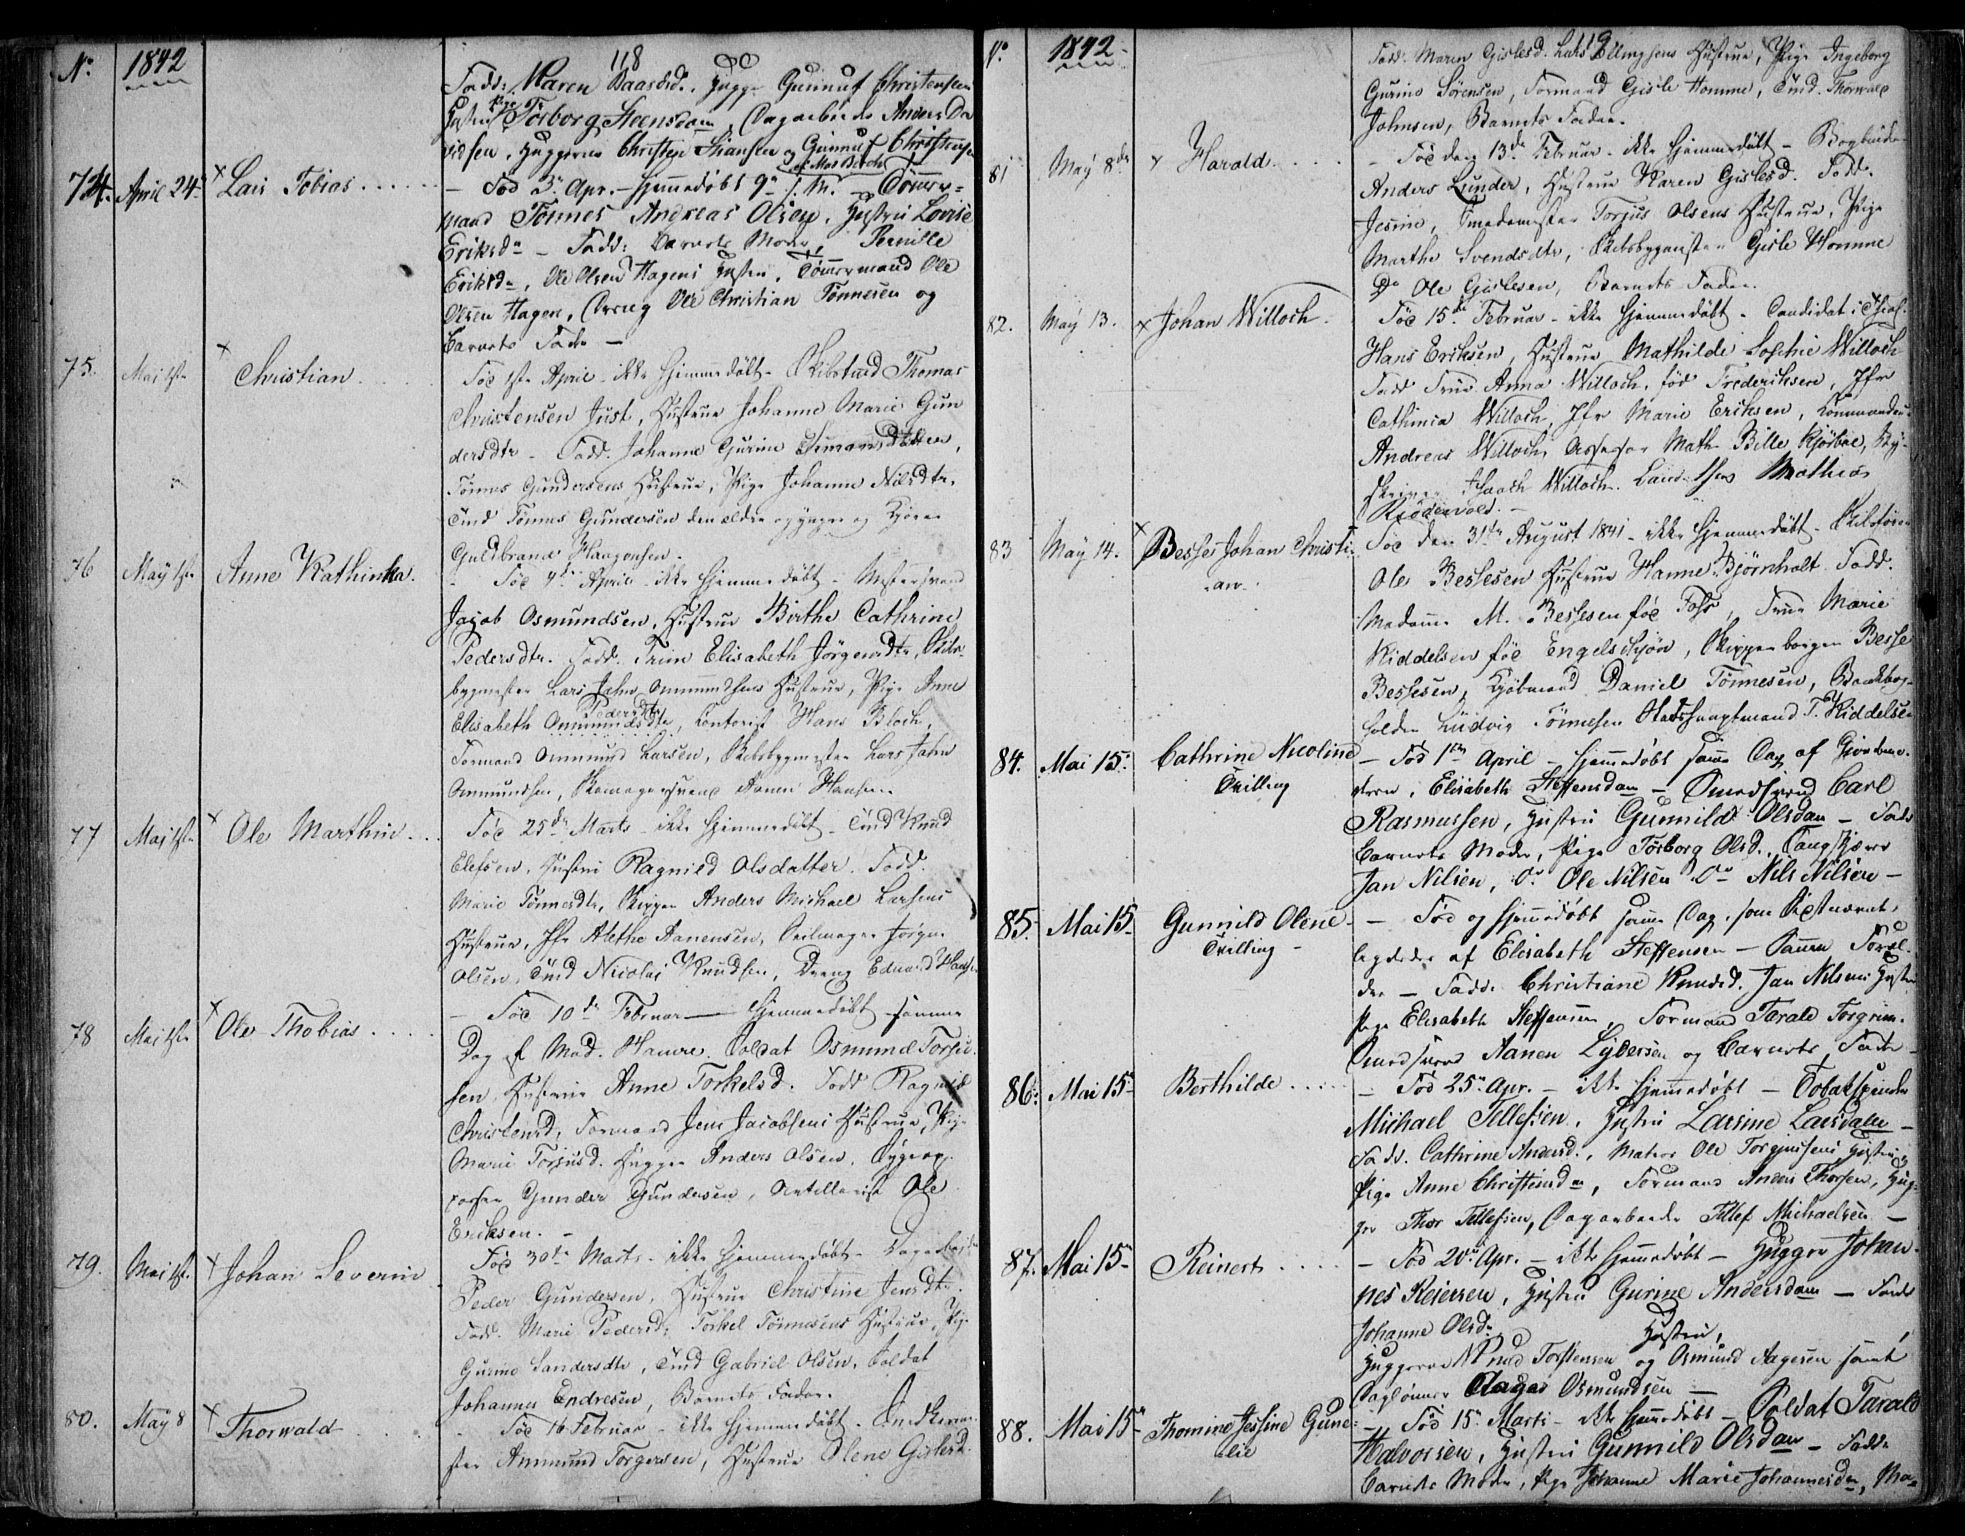 No 1842 118
Fadd: Maren Baasdr. Hugge Gunnuf Christensen
Hustru Pige Torborg Steensdatr, Dagarbeider Anders Da
vidsen, Huggerne Christen Hansen og Gunnuf Christensen
74. April 24 × Lars Tobias . . . . . — Fød 3 Apr. — Hjemmedøbt 9de s. M. af Mad. Birch — Tømmer-
mand Tønnes Andreas Olsen, Hustru Lovise
Eriksdr — Fadd: Barnets Moder, Pernille
Eriksdr, Ole Olsen Hagens Hustru, Tømmermand Ole
Olsen Hagen, Dreng Ole Christian Tønnesen og
Barnets Fader —
75. Mai 1ste × Christian . . . . Fød 1ste April - ikke hjemmedøbt - Skibstmd Thomas
Christensen Just, Hustrue Johanne Marie Gun
dersdtr - Fadd. Johanne Gurine Simonsdatter,
Tønnes Gundersens Hustrue, Pige Johanne Nilsdtr.
Tmd Tønnes Gundersen den eldre og yngre og
Guldbrand Haagensen.
76 Maÿ 1ste Anne Kathinka. - Fød 4de April - ikke hjemmedøbt - Mestersvend
Jacob Osmundsen, Hustrue Birthe Cathrine
Pedersdtr. Fadd. Trine Elisabeth Jörgensdtr, Skibs-
bygmester Lars Jahn Ommundsens Hustrue, Pige Anne
Elisabeth Pedersdtr, Contorist Hans Bloch,
Formand Ommund Larsen, Skibsbygmester Lars Jahn
Ommundsen, Skomagersvend Aanen Hansen.
77 Maj 1ste × Ole Marthin . . . Fød 25de Marts - ikke hjemmedøbt - Tmd Knud
Elefsen, Hustru Ragnild Olsdatter. Fadd.
Marie Tönnesdtr, Skipper Anders Michael Larsens
Hustrue, Jfr Alethe Aanensen, Seilmager Jørgen
Olsen, Tmd Nicolai Knudsen, Dreng Eduard Hans
78 Mai 1ste × Ole Thobias . . . . — Fød 10de Februar — Hjemmedøbt samme
Dag af Mad. Hanere. Soldat Osmund Torju
sen, Hustrue Anne Torkelsd. Fadd Ragnild
Christensd, Formand Jens Jacobsens Hustrue, Pige
Marie Torjusd. Hugger Anders Olsen, Sygeop-
passer Gunder Gundersen, Artillerist Ole
Eriksen. -
79. Mai 1ste × Johan Severin Fød 30te Marts - ikke hjemmedøbt - Dagarbeider
Peder Gundersen, Hustrue Christine Jensdtr.
Fadd. Marie Pedersd; Torkel Tönnesens Hustrue, Pige
Gurine Sandersdtr, Tmd Gabriel Olsen, Soldat
Johannes Endresen, Barnets Fader.
80. Maÿ 8 × Thorwald . . . - Fød 16 Februar - ikke hjemmedøbt -
ster Ammund Torgersen, Hustrue Olene Gislesd.
No 1842 119
Fadd. Maren Gislesd. Lars Ellingsens Hustrue, Pige Ingeborg
Gurine Sörensen, Formand Gisle Homme, Tmd. Thorwald
Johnsen, Barnets Fader.
81 Maÿ 8de × Harald . . . . - Fød den 13de Februar - ikke hjemmedøbt - Bogbinder
Anders Lunder, Hustrue Karen Gislesd. Fadd.
Jesine, Smedemester Torjus Olsens Hustrue, Pige
Marthe Svendsdtr, Skibsbygmester Gisle Homme
Do Ole Gislesen, Barnets Fader.
82. Maÿ 13. × Johan Willoch. Fød 15de Februar - ikke hjemmedøbt - Candidat i Theol.
Hans Eriksen, Hustrue Mathilde Sophie Willoch
Fadd Frue Anna Willoch, fød Frederiksen, Jfr
Cathinca Willoch, Jfr Marie Eriksen, Commandeur
Andreas Willoch, Assessor Math. Bille Kjörboe, By-
skriver Isaach Willoch. Mathias
Riddervold. -
83 Maÿ 14. × Besses Johan Christi- Fød den 31te August 1841 - ikke hjemmedøbt -
-an. Ole Bessesen Hustrue Hanne Björnholt. Fadd.
Madame M. Bessesen fød Foss, Frue Marie
Kiddelsen fød Engelskjøn, Skipperborger Besse
Bessesen, Kjøbmand Daniel Tönnesen, Bankbog-
holder Ludvig Tönnesen Stadshauptmand T. Kiddelsen
84. Mai 15. Cathrine Nicoline — Fød 1ste April - hjemmedøbt samme Dag af Giordemo-
Tvilling deren, Elisabeth Steffensdatr — Smedsvend Carl
Rasmussen, Hustru Gunnild Olsdatr — Fadd
Barnets Moder, Pige Torborg Olsd, Langskjærs
Jan Nilsen, Do Ole Nilsen Do Nils Nilsen —
85. Mai 15 Gunnild Olene - — Fød og hjemmedøbt samme Dag, som Sidstnævnte,
Tvilling - ligeledes af Elisabeth Steffensen — Samme Foræl-
dre — Fadd: Christiane Knudsd. Jan Nilsens Hustru
Pige Elisabeth Steffensen, Formand Tarald Torgrim.
Smedsvend Aanen Lydersen og Barnets Fader
86. Mai 15 Berthilde . . . . — Fød 25 Apr. — ikke hjemmedøbt — Tobakspinder
Michael Tellefsen, Hustru Larsine Larsdatr —
Fadd. Cathrine Andersd., Matros Ole Torgiusens Hustru,
Pige Anne Christensdn, Formand Anders Thorsen, Hug-
ger Thor Tellefsen, Dagarbeider Tellef Michaelsen —
87. Mai 15 Reinert . . . . — Fød 20 Apr. — ikke hjemmedøbt — Hugger Johan-
nes Reiersen, Hustru Gurine Andersdatr — Fadd
Johanne Olsdr Hustru,
Huggerne Knud Torstensen og Osmund Aagesen samt
Daglønner Aage Osmundsen —
88. Mai 15 Thomine Jessine Gune- — Fød 15 Marts - ikke hjemmedøbt — Soldat Tarald
elie Halvorsen, Hustru Gunnild Olsdatr — Fadd:
Barnets Moder, Pige Johanne Marie Johannesdn, Ma-